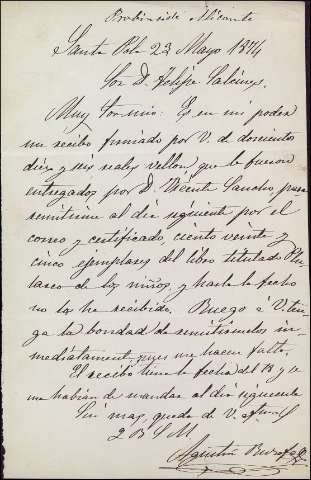 Provincia de Alicante
Santa Pola 22 Mayo 1874
Sor. D. Felipe Salcines.
Muy Sor. mio: Es en mi poder
un recibo firmado por V. de doscientos
diez y seis reales vellon que le fueron
entregados por D. Vicente Sancho, para
remitirme al dia siguiente por el
correo y certificado, ciento veinte y
cinco ejemplares del libro titulado Plu-
tarco de los niños, y hasta la fecha
no los he recibido. Ruego á V. ten-
ga la bondad de remitirmelos in-
mediatament, pues me hacen falta.
El recibo tiene la fecha del 13 y se
me habian de mandar al dia siguiente
Sin mas, queda de V. afmo. S.
Q B S M.
Agustin